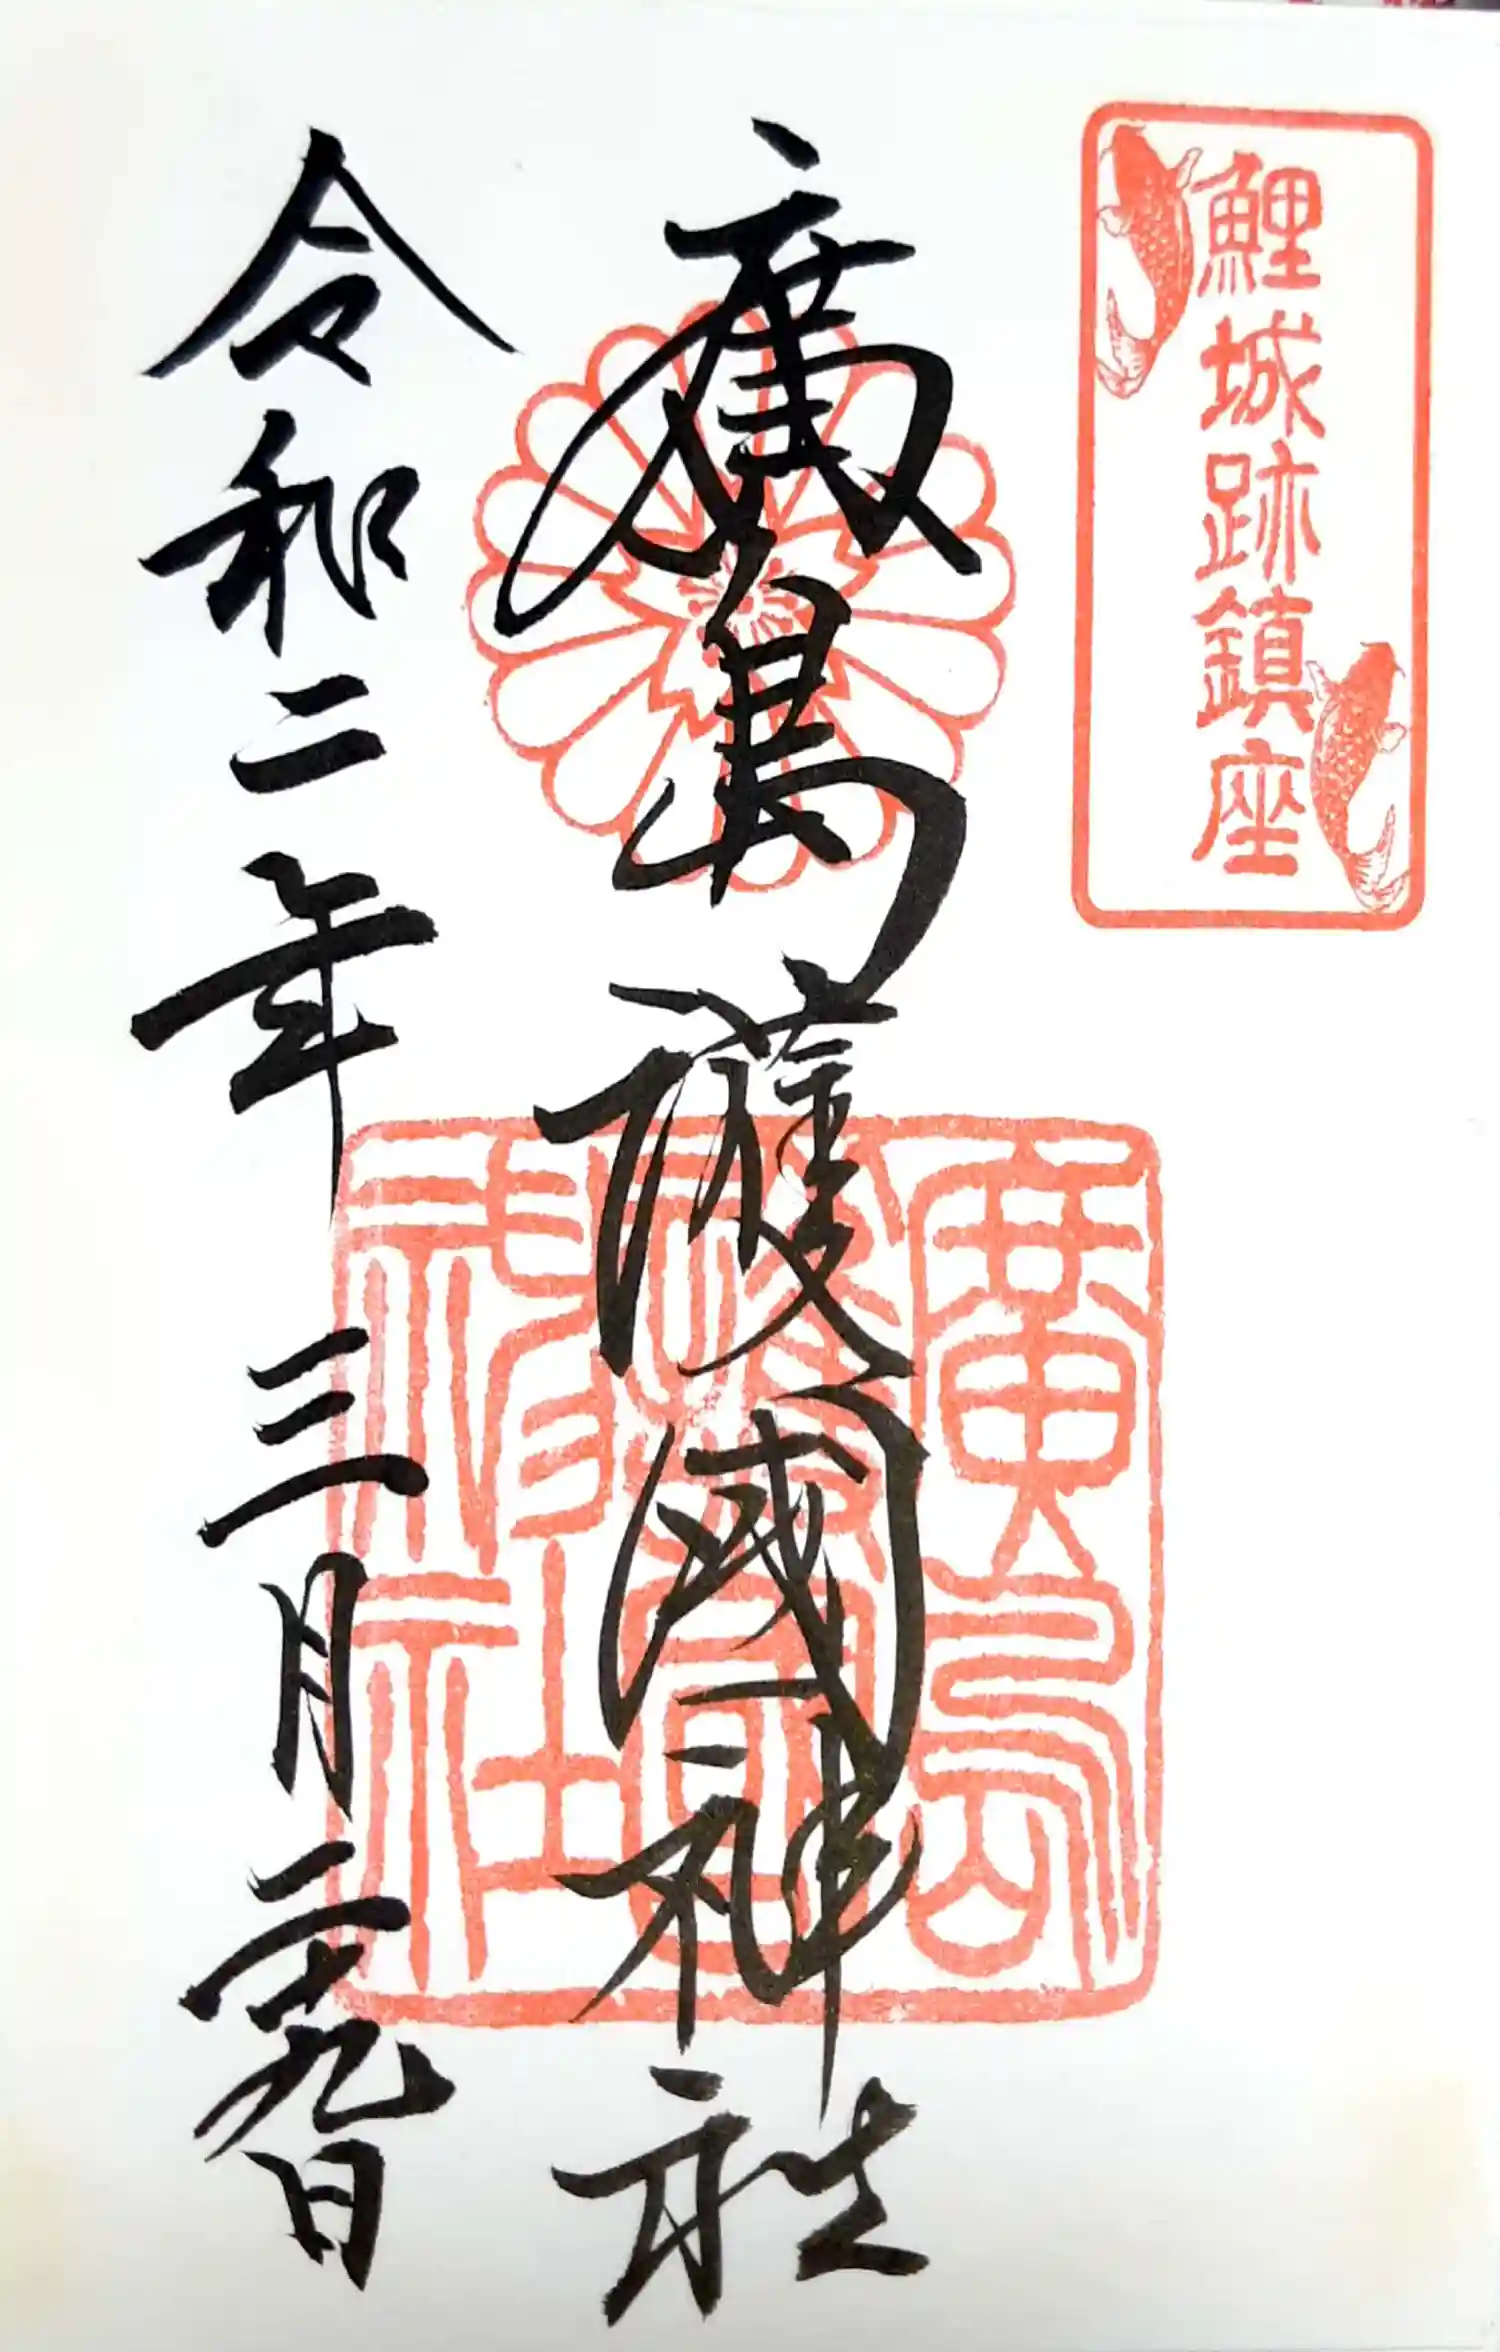 鯉城跡鎮座
廣島護國神社
廣島
護國
神社
令和二年 三月二十九日